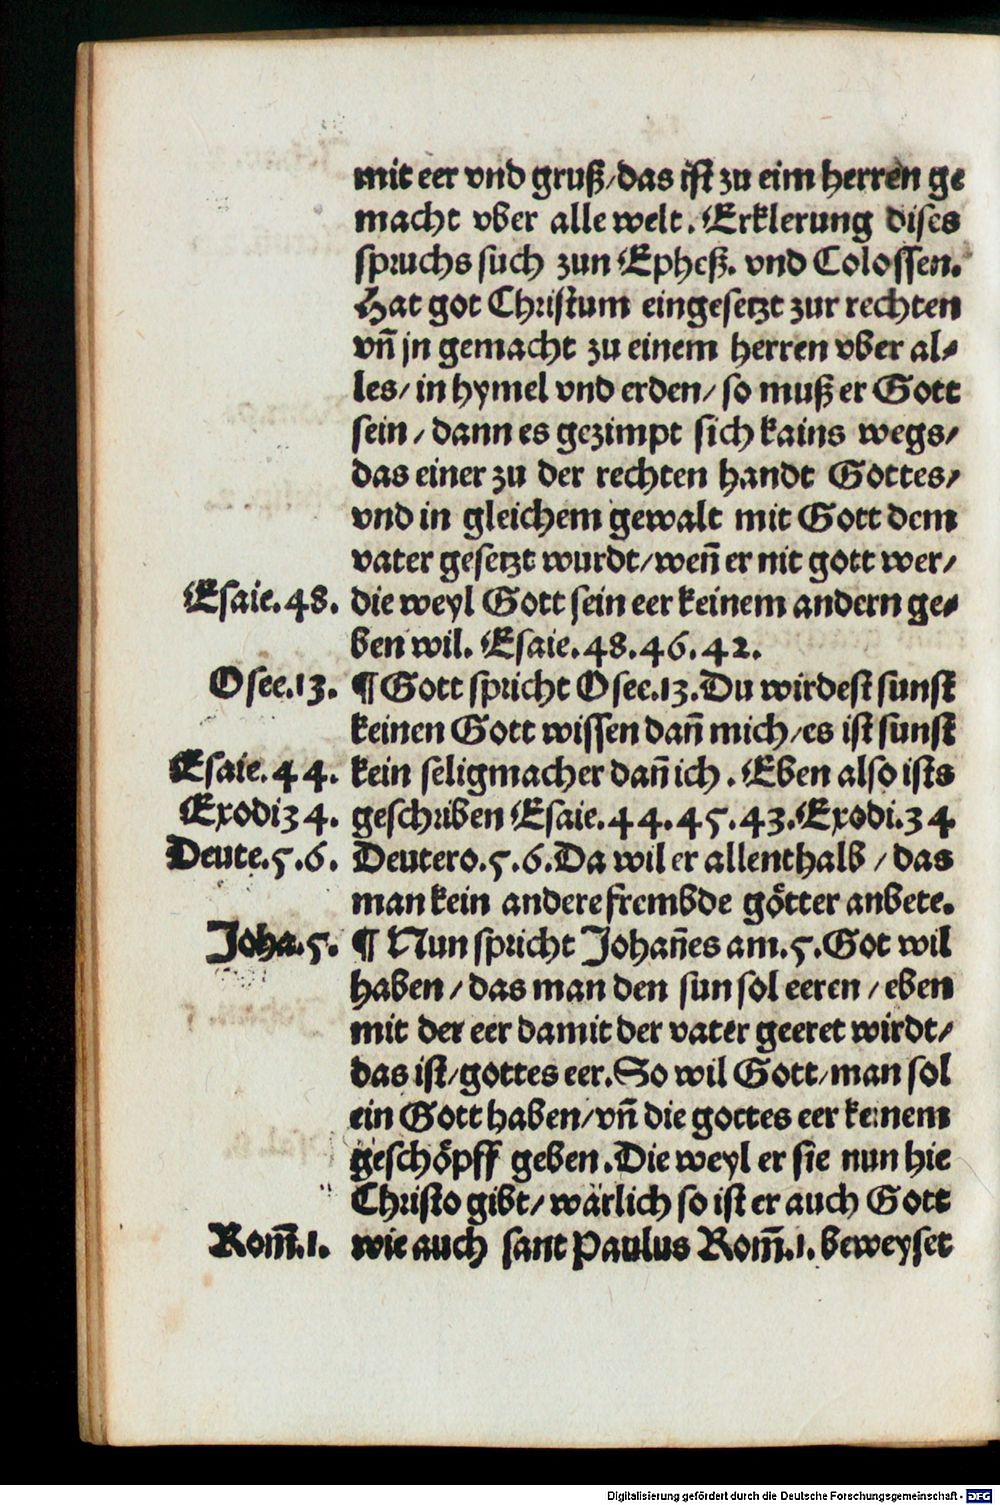 mit eer vnd gruß/das ist zu eim herren ge
macht vber alle welt. Erklerung dises
spruchs such zun Epheß. vnd Colossen.
Hat got Christum eingesetzt zur rechten
vñ jn gemacht zu einem herren vber al⸗
les/ in hymel vnd erden/ so muß er Gott
sein/ dann es gezimpt sich kains wegs/
das einer zu der rechten handt Gottes/
vnd in gleichem gewalt mit Gott dem
vater gesetzt wurdt/ weñ er nit gott wer/
Esaie.48. die weyl Gott sein eer keinem andern ge⸗
ben wil. Esaie.48.46.42.
Osee.13. ¶ Gott spricht Osee.13. Du wirdest sunst
keinen Gott wissen dañ mich/es ist sunst
Esaie.44. kein seligmacher dañ ich. Eben also ists
Exodi34. geschriben Esaie.44.45.43. Exodi.34
Deute.5.6. Deutero.5.6. Da wil er allenthalb/ das
man kein andere frembde götter anbete.
Joha.5. ¶ Nun spricht Johañes am.5. Got wil
haben/ das man den sun sol eeren/ eben
mit der eer damit der vater geeret wirdt/
das ist/gottes eer. So wil Gott/man sol
ein Gott haben/vñ die gottes eer keinem
geschöpff geben. Die weyl er sie nun hie
Christo gibt/ wärlich so ist er auch Gott
Rom̃.1. wie auch sant Paulus Rom̃.1. beweyset
Digitalisierung gefördert durch die Deutsche Forschungsgemeinschaft - DFG